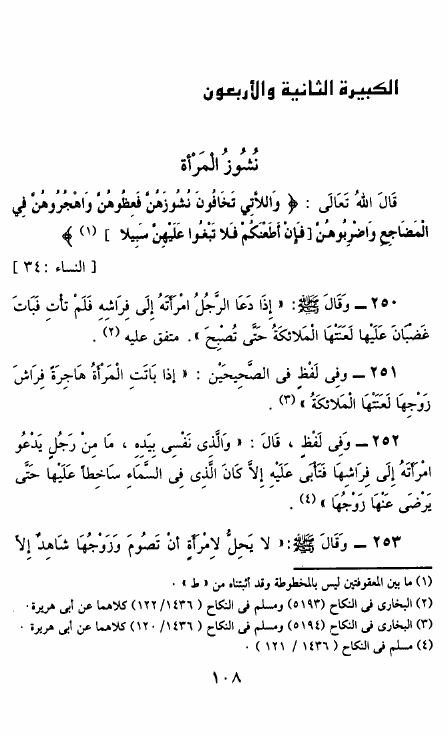 الكبيرة الثانية والأربعون
نُشُوزُ الْمَرْأَة
قَالَ اللهُ تَعَالَى : ﴿ وَاللاَّتِي تَخَافُونَ نُشُوزَهُنَّ فَعِظُوهُنَّ وَاهْجُرُوهُنَّ فِي
الْمَضَاجِعِ وَاضْرِبُوهُنَّ [ فَإِنْ أَطَعْنَكُمْ فَلاَ تَبْغُوا عَلَيْهِنَّ سَبِيلاً ] (١) ﴾
[ النساء : ٣٤ ]
٢٥٠ ــ وَقَالَ ﷺ : « إِذَا دَعَا الرَّجُلُ امْرَأَتَهُ إِلَى فِرَاشِهِ فَلَمْ تَأْتِ فَبَاتَ
غَضْبَانَ عَلَيْهَا لَعَنَتْهَا الْمَلاَئِكَةُ حَتَّى تُصْبِحَ » . متفق عليه (٢) .
٢٥١ ــ وَفِى لَفْظٍ فى الصَّحِيحَيْن : « إذا بَاتَتِ الْمَرْأَةُ هَاجِرَةً فِرَاشَ
زَوْجِهَا لَعَنَتْهَا الْمَلاَئِكَةُ » (٣) .
٢٥٢ ــ وَفِى لَفْظٍ ، قَالَ : « وَالَّذِى نَفْسِى بِيَدِهِ ، مَا مِنْ رَجُلٍ يَدْعُو
امْرَأَتَهُ إِلَى فِرَاشِهَا فَتَأْبَى عَلَيْهِ إِلاَّ كَانَ الَّذِى فِى السَّمَاءِ سَاخِطاً عَلَيْهَا حَتَّى
يَرْضَى عَنْهَا زَوْجُهَا » (٤) .
٢٥٣ ــ وَقَالَ ﷺ : « لاَ يَحِلُّ لاِمْرَأَةٍ أَنْ تَصُومَ وَزَوْجُهَا شَاهِدٌ إِلاَّ
(١) ما بين المعقوفتين ليس بالمخطوطة وقد أثبتناه من « ط » .
(٢) البخارى فى النكاح (٥١٩٣) ومسلم فى النكاح ( ١٤٣٦/ ١٢٢) كلاهما عن أبى هريرة .
(٣) البخارى فى النكاح (٥١٩٤) ومسلم فى النكاح ( ١٤٣٦/ ١٢٠) كلاهما عن أبى هريرة .
(٤) مسلم فى النكاح ( ١٤٣٦ / ١٢١ ) .
١٠٨